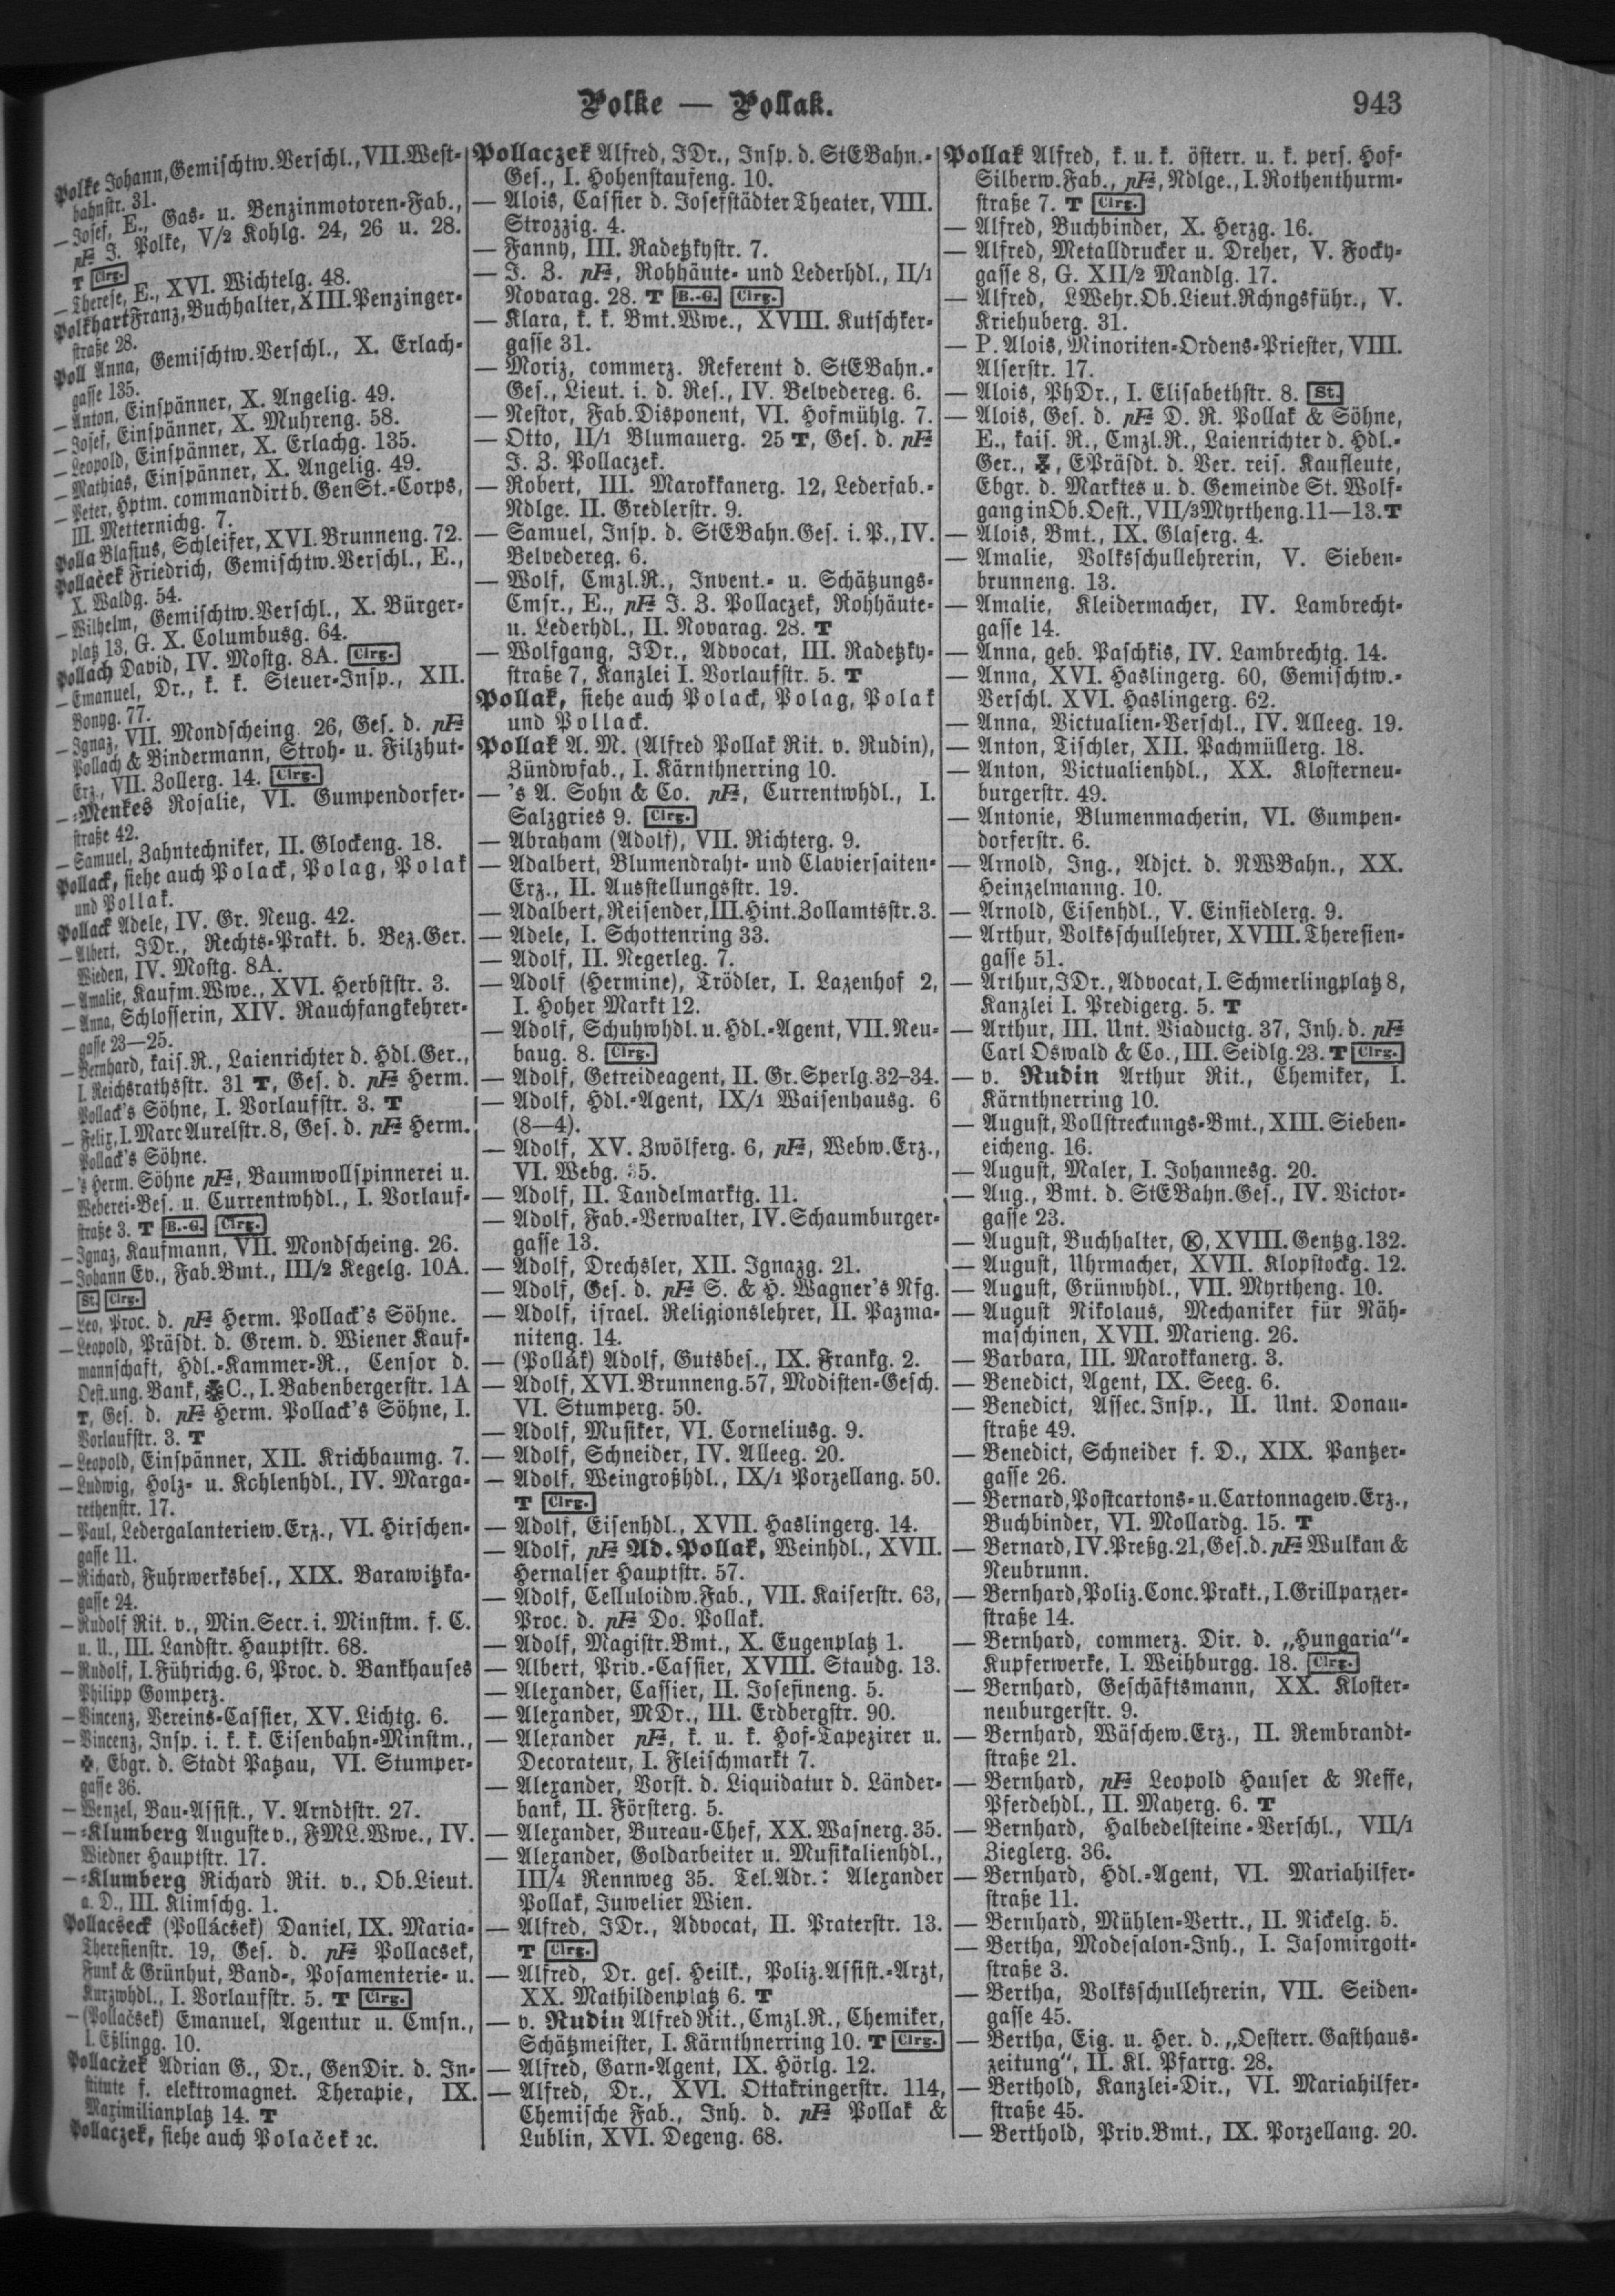 Polke — Pollak.
943
Polke Johann, Gemischtw.Verschl., VII. West-
bahnstr. 31.
— Josef, E., Gas- u. Benzinmotoren-Fab.,
pFa J. Polke, V/2 Kohlg. 24, 26 u. 28.
T Clrg.
— Therese, E., XVI. Wichtelg. 48.
Polkhart Franz, Buchhalter, XIII. Penzinger-
straße 28.
Poll Anna, Gemischtw.Verschl., X. Erlach-
gasse 135.
— Anton, Einspänner, X. Angelig. 49.
— Josef, Einspänner, X. Muhreng. 58.
— Leopold, Einspänner, X. Erlachg. 135.
— Mathias, Einspänner, X. Angelig. 49.
— Peter, Hptm. commandirt b. GenSt.-Corps,
III. Metternichg. 7.
Polla Blasius, Schleifer, XVI. Brunneng. 72.
Pollaček Friedrich, Gemischtw.Verschl., E.,
X. Waldg. 54.
— Wilhelm, Gemischtw.Verschl., X. Bürger-
platz 13, G. X. Columbusg. 64.
Pollach David, IV. Mostg. 8A. Clrg.
— Emanuel, Dr., k. k. Steuer-Insp., XII.
Bonyg. 77.
— Ignaz, VII. Mondscheing. 26, Ges. d. pFa
Pollach & Bindermann, Stroh- u. Filzhut-
Erz., VII. Zollerg. 14. Clrg.
— -Menkes Rosalie, VI. Gumpendorfer-
straße 42.
— Samuel, Zahntechniker, II. Glockeng. 18.
Pollack, siehe auch Polack, Polag, Polak
und Pollak.
Pollack Adele, IV. Gr. Neug. 42.
— Albert, JDr., Rechts-Prakt. b. Bez.Ger.
Wieden, IV. Mostg. 8A.
— Amalie, Kaufm.Wwe., XVI. Herbststr. 3.
— Anna, Schlosserin, XIV. Rauchfangkehrer-
gasse 23—25.
— Bernhard, kais.R., Laienrichter d. Hdl.Ger.,
I. Reichsrathsstr. 31 T, Ges. d. pFa Herm.
Pollack's Söhne, I. Vorlaufstr. 3. T
— Felix, I. Marc Aurelstr. 8, Ges. d. pFa Herm.
Pollack's Söhne.
— 's Herm. Söhne pFa, Baumwollspinnerei u.
Weberei-Bes. u. Currentwhdl., I. Vorlauf-
straße 3. T B.-G. Clrg.
— Ignaz, Kaufmann, VII. Mondscheing. 26.
— Johann Ev., Fab.Bmt., III/2 Kegelg. 10A.
St. Clrg.
— Leo, Proc. d. pFa Herm. Pollack's Söhne.
— Leopold, Präsdt. d. Grem. d. Wiener Kauf-
mannschaft, Hdl.-Kammer-R., Censor d.
Oest.ung. Bank, C., I. Babenbergerstr. 1A
T, Ges. d. pFa Herm. Pollack's Söhne, I.
Vorlaufstr. 3. T
— Leopold, Einspänner, XII. Krichbaumg. 7.
— Ludwig, Holz- u. Kohlenhdl., IV. Marga-
rethenstr. 17.
— Paul, Ledergalanteriew.Erz., VI. Hirschen-
gasse 11.
— Richard, Fuhrwerksbes., XIX. Barawitzka-
gasse 24.
— Rudolf Rit. v., Min.Secr. i. Minstm. f. C.
u. U., III. Landstr. Hauptstr. 68.
— Rudolf, I. Führichg. 6, Proc. d. Bankhauses
Philipp Gomperz.
— Vincenz, Vereins-Cassier, XV. Lichtg. 6.
— Vincenz, Insp. i. k. k. Eisenbahn-Minstm.,
✠, Ebgr. d. Stadt Patzau, VI. Stumper-
gasse 36.
— Wenzel, Bau-Assist., V. Arndtstr. 27.
— -Klumberg Auguste v., FML.Wwe., IV.
Wiedner Hauptstr. 17.
— -Klumberg Richard Rit. v., Ob.Lieut.
a. D., III. Klimschg. 1.
Pollacseck (Pollácsek) Daniel, IX. Maria-
Theresienstr. 19, Ges. d. pFa Pollacsek,
Funk & Grünhut, Band-, Posamenterie- u.
Kurzwhdl., I. Vorlaufstr. 5. T Clrg.
— (Pollačsek) Emanuel, Agentur u. Cmsn.,
I. Eßlingg. 10.
Pollaczek Adrian G., Dr., GenDir. d. In-
stitute f. elektromagnet. Therapie, IX.
Maximilianplatz 14. T
Pollaczek, siehe auch Polaček ꝛc.
Pollaczek Alfred, JDr., Insp. d. StEBahn.-
Ges., I. Hohenstaufeng. 10.
— Alois, Cassier d. Josefstädter Theater, VIII.
Strozzig. 4.
— Fanny, III. Radetzkystr. 7.
— J. Z. pFa, Rohhäute- und Lederhdl., II/1
Novarag. 28. T B.-G. Clrg.
— Klara, k. k. Bmt.Wwe., XVIII. Kutschker-
gasse 31.
— Moriz, commerz. Referent d. StEBahn.-
Ges., Lieut. i. d. Res., IV. Belvedereg. 6.
— Nestor, Fab.Disponent, VI. Hofmühlg. 7.
— Otto, II/1 Blumauerg. 25 T, Ges. d. pFa
J. Z. Pollaczek.
— Robert, III. Marokkanerg. 12, Lederfab.-
Ndlge. II. Gredlerstr. 9.
— Samuel, Insp. d. StEBahn.Ges. i. P., IV.
Belvedereg. 6.
— Wolf, Cmzl.R., Invent.- u. Schätzungs-
Cmsr., E., pFa J. Z. Pollaczek, Rohhäute-
u. Lederhdl., II. Novarag. 28. T
— Wolfgang, JDr., Advocat, III. Radetzky-
straße 7, Kanzlei I. Vorlaufstr. 5. T
Pollak, siehe auch Polack, Polag, Polak
und Pollack.
Pollak A. M. (Alfred Pollak Rit. v. Rudin),
Zündwfab., I. Kärnthnerring 10.
— 's A. Sohn & Co. pFa, Currentwhdl., I.
Salzgries 9. Clrg.
— Abraham (Adolf), VII. Richterg. 9.
— Adalbert, Blumendraht- und Claviersaiten-
Erz., II. Ausstellungsstr. 19.
— Adalbert, Reisender, III. Hint. Zollamtsstr. 3.
— Adele, I. Schottenring 33.
— Adolf, II. Negerleg. 7.
— Adolf (Hermine), Trödler, I. Lazenhof 2,
I. Hoher Markt 12.
— Adolf, Schuhwhdl. u. Hdl.-Agent, VII. Neu-
baug. 8. Clrg.
— Adolf, Getreideagent, II. Gr. Sperlg. 32–34.
— Adolf, Hdl.-Agent, IX/1 Waisenhausg. 6
(8—4).
— Adolf, XV. Zwölferg. 6, pFa, Webw.Erz.,
VI. Webg. 35.
— Adolf, II. Tandelmarktg. 11.
— Adolf, Fab.-Verwalter, IV. Schaumburger-
gasse 13.
— Adolf, Drechsler, XII. Ignazg. 21.
— Adolf, Ges. d. pFa S. & H. Wagner's Nfg.
— Adolf, israel. Religionslehrer, II. Pazma-
niteng. 14.
— (Pollák) Adolf, Gutsbes., IX. Frankg. 2.
— Adolf, XVI. Brunneng. 57, Modisten-Gesch.
VI. Stumperg. 50.
— Adolf, Musiker, VI. Corneliusg. 9.
— Adolf, Schneider, IV. Alleeg. 20.
— Adolf, Weingroßhdl., IX/1 Porzellang. 50.
T Clrg.
— Adolf, Eisenhdl., XVII. Haslingerg. 14.
— Adolf, pFa Ad. Pollak, Weinhdl., XVII.
Hernalser Hauptstr. 57.
— Adolf, Celluloidw.Fab., VII. Kaiserstr. 63,
Proc. d. pFa Do. Pollak.
— Adolf, Magistr.Bmt., X. Eugenplatz 1.
— Albert, Priv.-Cassier, XVIII. Staudg. 13.
— Alexander, Cassier, II. Josefineng. 5.
— Alexander, MDr., III. Erdbergstr. 90.
— Alexander pFa, k. u. k. Hof-Tapezirer u.
Decorateur, I. Fleischmarkt 7.
— Alexander, Vorst. d. Liquidatur d. Länder-
bank, II. Försterg. 5.
— Alexander, Bureau-Chef, XX. Wasnerg. 35.
— Alexander, Goldarbeiter u. Musikalienhdl.,
III/4 Rennweg 35. Tel.Adr.: Alexander
Pollak, Juwelier Wien.
— Alfred, JDr., Advocat, II. Praterstr. 13.
T Clrg.
— Alfred, Dr. ges. Heilk., Poliz.Assist.-Arzt,
XX. Mathildenplatz 6. T
— v. Rudin Alfred Rit., Cmzl.R., Chemiker,
Schätzmeister, I. Kärnthnerring 10. T Clrg.
— Alfred, Garn-Agent, IX. Hörlg. 12.
— Alfred, Dr., XVI. Ottakringerstr. 114,
Chemische Fab., Inh. d. pFa Pollak &
Lublin, XVI. Degeng. 68.
Pollak Alfred, k. u. k. österr. u. k. pers. Hof-
Silberw.Fab., pFa, Ndlge., I. Rothenthurm-
straße 7. T Clrg.
— Alfred, Buchbinder, X. Herzg. 16.
— Alfred, Metalldrucker u. Dreher, V. Focky-
gasse 8, G. XII/2 Mandlg. 17.
— Alfred, LWehr.Ob.Lieut.Rchngsführ., V.
Kriehuberg. 31.
— P. Alois, Minoriten-Ordens-Priester, VIII.
Alserstr. 17.
— Alois, PhDr., I. Elisabethstr. 8. St.
— Alois, Ges. d. pFa D. R. Pollak & Söhne,
E., kais. R., Cmzl.R., Laienrichter d. Hdl.-
Ger., ✠, EPräsdt. d. Ver. reis. Kaufleute,
Ebgr. d. Marktes u. d. Gemeinde St. Wolf-
gang in Ob.Oest., VII/3 Myrtheng. 11—13. T
— Alois, Bmt., IX. Glaserg. 4.
— Amalie, Volksschullehrerin, V. Sieben-
brunneng. 13.
— Amalie, Kleidermacher, IV. Lambrecht-
gasse 14.
— Anna, geb. Paschkis, IV. Lambrechtg. 14.
— Anna, XVI. Haslingerg. 60, Gemischtw.-
Verschl. XVI. Haslingerg. 62.
— Anna, Victualien-Verschl., IV. Alleeg. 19.
— Anton, Tischler, XII. Pachmüllerg. 18.
— Anton, Victualienhdl., XX. Klosterneu-
burgerstr. 49.
— Antonie, Blumenmacherin, VI. Gumpen-
dorferstr. 6.
— Arnold, Ing., Adjct. d. NWBahn., XX.
Heinzelmanng. 10.
— Arnold, Eisenhdl., V. Einsiedlerg. 9.
— Arthur, Volksschullehrer, XVIII. Theresien-
gasse 51.
— Arthur, JDr., Advocat, I. Schmerlingplatz 8,
Kanzlei I. Predigerg. 5. T
— Arthur, III. Unt. Viaductg. 37, Inh. d. pFa
Carl Oswald & Co., III. Seidlg. 23. T Clrg.
— v. Rudin Arthur Rit., Chemiker, I.
Kärnthnerring 10.
— August, Vollstreckungs-Bmt., XIII. Sieben-
eicheng. 16.
— August, Maler, I. Johannesg. 20.
— Aug., Bmt. d. StEBahn.Ges., IV. Victor-
gasse 23.
— August, Buchhalter, Ⓚ, XVIII. Gentzg. 132.
— August, Uhrmacher, XVII. Klopstockg. 12.
— August, Grünwhdl., VII. Myrtheng. 10.
— August Nikolaus, Mechaniker für Näh-
maschinen, XVII. Marieng. 26.
— Barbara, III. Marokkanerg. 3.
— Benedict, Agent, IX. Seeg. 6.
— Benedict, Assec.Insp., II. Unt. Donau-
straße 49.
— Benedict, Schneider f. D., XIX. Pantzer-
gasse 26.
— Bernard, Postcartons- u. Cartonnagew.Erz.,
Buchbinder, VI. Mollardg. 15. T
— Bernard, IV. Preßg. 21, Ges. d. pFa Wulkan &
Neubrunn.
— Bernhard, Poliz.Conc.Prakt., I. Grillparzer-
straße 14.
— Bernhard, commerz. Dir. d. „Hungaria"-
Kupferwerke, I. Weihburgg. 18. Clrg.
— Bernhard, Geschäftsmann, XX. Kloster-
neuburgerstr. 9.
— Bernhard, Wäschew.Erz., II. Rembrandt-
straße 21.
— Bernhard, pFa Leopold Hauser & Neffe,
Pferdehdl., II. Mayerg. 6. T
— Bernhard, Halbedelsteine-Verschl., VII/1
Zieglerg. 36.
— Bernhard, Hdl.-Agent, VI. Mariahilfer-
straße 11.
— Bernhard, Mühlen-Vertr., II. Nickelg. 5.
— Bertha, Modesalon-Inh., I. Jasomirgott-
straße 3.
— Bertha, Volksschullehrerin, VII. Seiden-
gasse 45.
— Bertha, Eig. u. Her. d. „Oesterr. Gasthaus-
zeitung", II. Kl. Pfarrg. 28.
— Berthold, Kanzlei-Dir., VI. Mariahilfer-
straße 45.
— Berthold, Priv.Bmt., IX. Porzellang. 20.